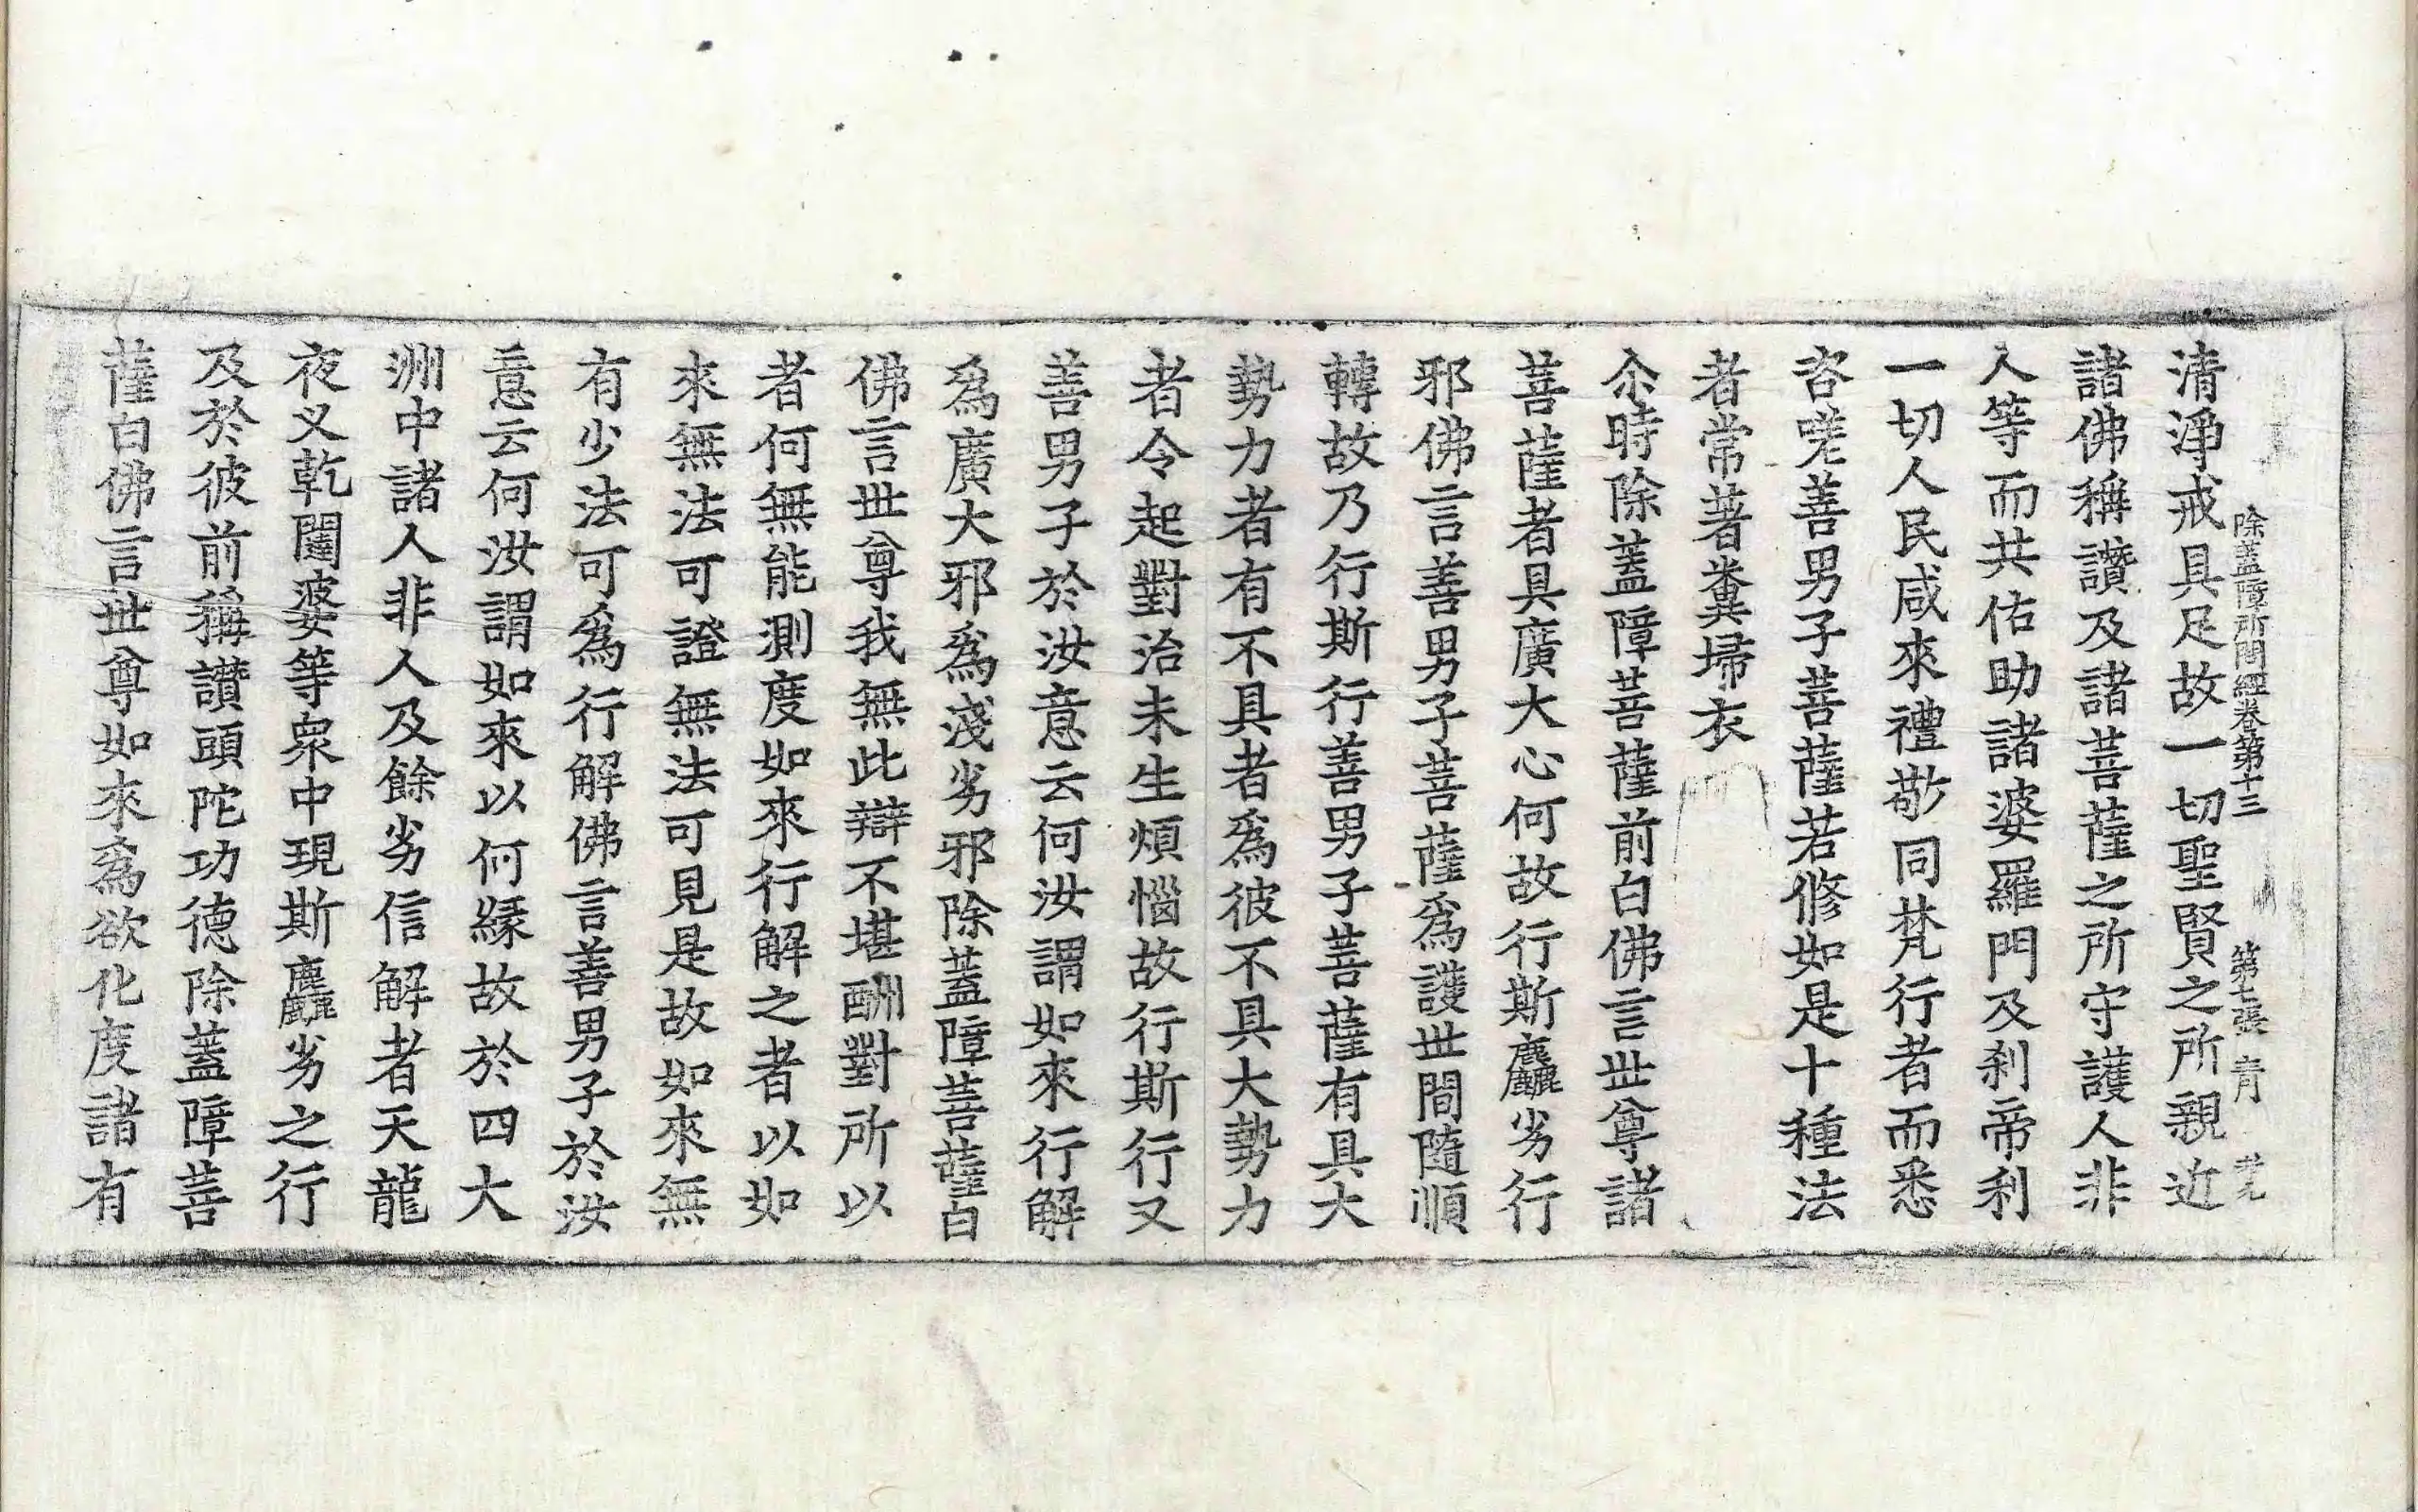 除蓋障所問經卷第十三 第七張 青
清淨戒具足故一切聖賢之所親近
諸佛稱讚及諸菩薩之所守護人非
人等而共佑助諸婆羅門及刹帝利
一切人民咸來禮敬同梵行者而悉
咨嗟善男子菩薩若修如是十種法
者常著糞掃衣
尒時除蓋障菩薩前白佛言世尊諸
菩薩者具廣大心何故行斯麤劣行
邪佛言善男子菩薩爲護世間隨順
轉故乃行斯行善男子菩薩有具大
勢力者有不具者爲彼不具大勢力
者令起對治未生煩惱故行斯行又
善男子於汝意云何汝謂如來行解
爲廣大邪爲淺劣邪除蓋障菩薩白
佛言世尊我無此辯不堪酬對所以
者何無能測度如來行解之者以如
來無法可證無法可見是故如來無
有少法可爲行解佛言善男子於汝
意云何汝謂如來以何緣故於四大
洲中諸人非人及餘劣信解者天龍
夜叉乾闥婆等衆中現斯麤劣之行
及於彼前稱讚頭陀功德除蓋障菩
薩白佛言世尊如來爲欲化度諸有